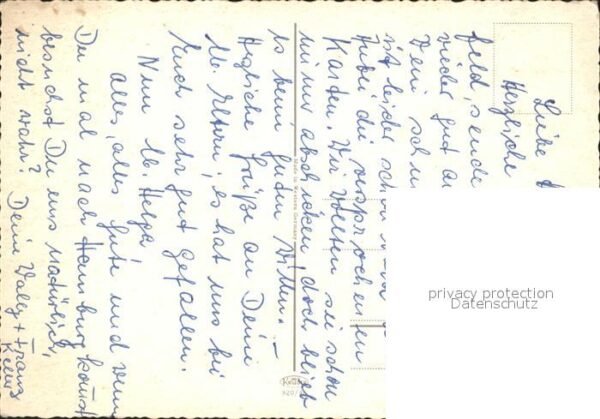 Liebe
Herzliche
feld, sende
wieder gut
Dein
ist leider schon
Habe die versprochenen
Karten. Wir wollten sie schon
immer abschicken doch blieb
es beim guten Willen.
Herzliche Grüße an Deine
lb. Eltern, es hat uns bei
Euch sehr gut gefallen.
Nun lb. Helga
alles, alles Gute und wenn
Du mal nach Hamburg kommst
besuchst Du uns natürlich,
nicht wahr? Deine Wally + Franz
Made in Western Germany
Krüger
privacy protection
Datenschutz